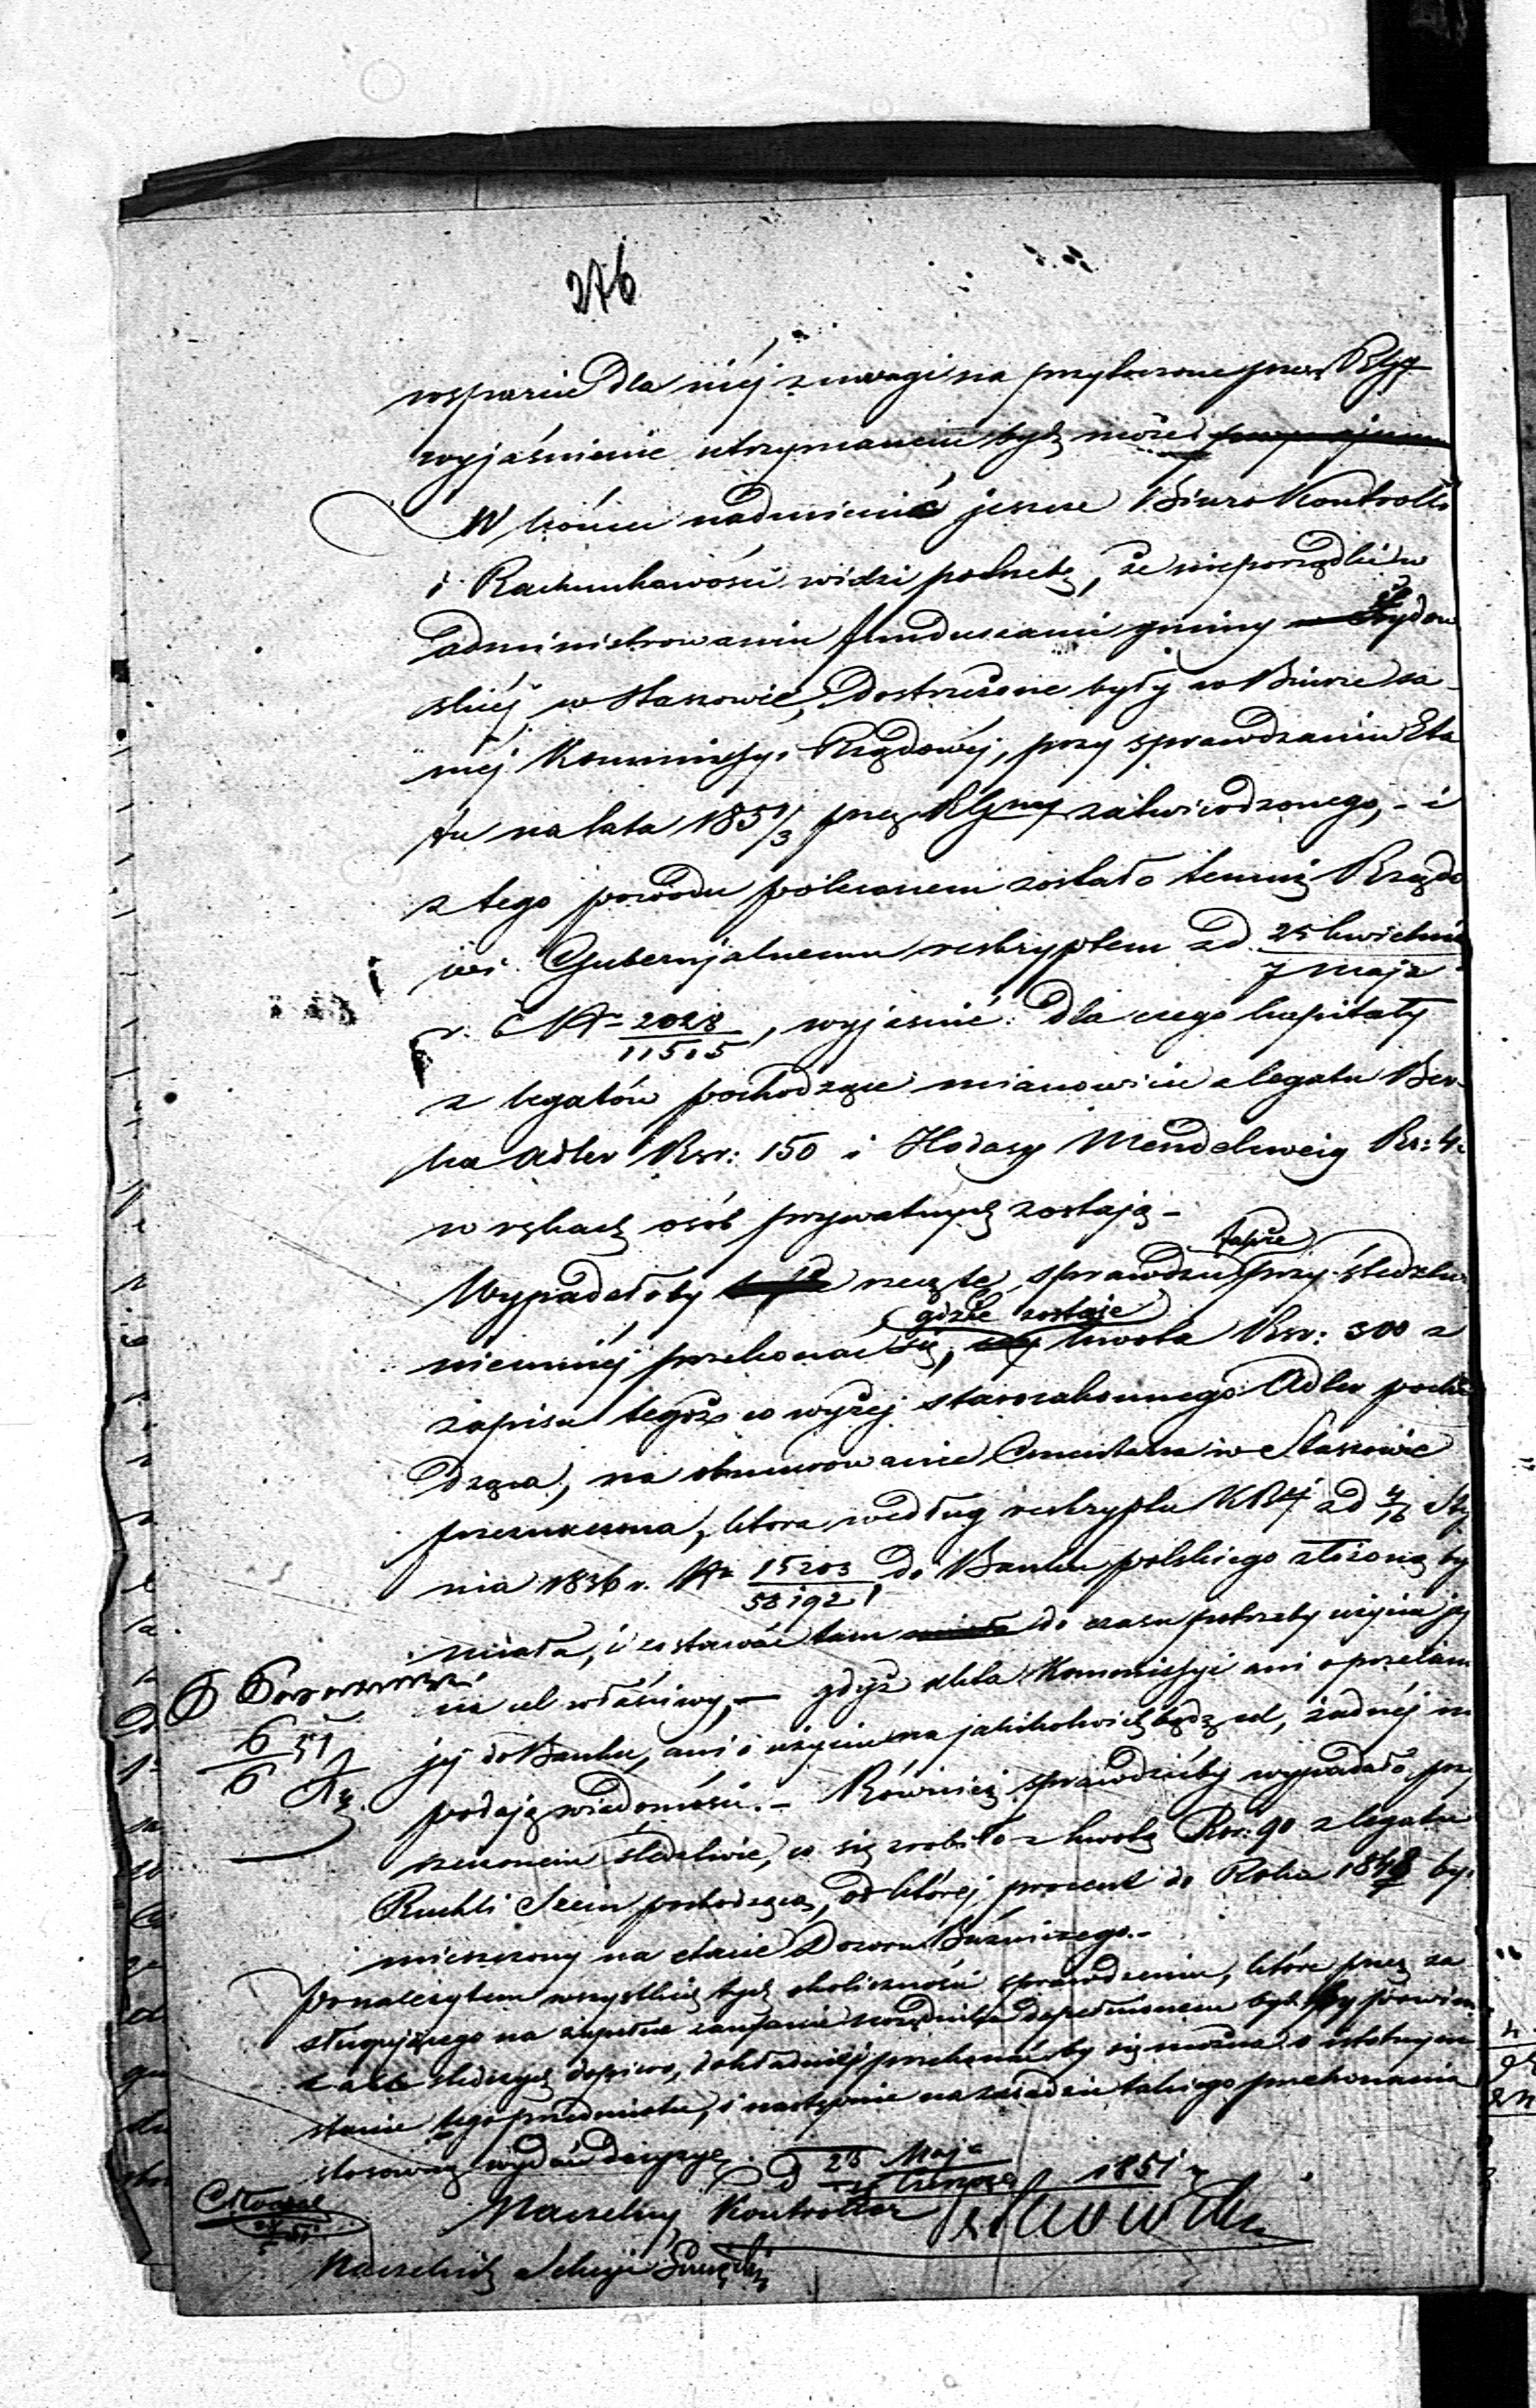 276
wsparcie dla niéj z uwagi na przytoczone przez RGg
wyjaśnienie utrzymanem bydź może
W końcu nadmienić jeszcze Biuro Kontrolli
i Rachunkowości widzi potrzebę, że nieporządki w
administrowaniu funduszami gminy żydow
skiéj w Staszowie, dostrzeżone były w Biurze sa-
méj Kommissyi Rządowéj, przy sprawdzaniu Eta
tu na lata 1851/3 przez RGny zatwierdzonego, - i
z tego powodu poleconem zostało temuż Rządo
wi Gubernjalnemu reskryptem z d. 25 kwietnia / 7 maja
r. b. No 2028 / 11515, wyjaśnić: dla czego kapitały
z legatów pochodzące mianowicie z legatu Ber-
ka Adler Rsr: 150 i Hodasy Mendelzweig Rs: 4
w rękach osób prywatnych zostają -
Wypadałoby rzecz tę sprawdzić także przy śledztw
niemniéj przekonać się, gdzie zostaje kwota Rsr: 300 z
zapisu tegoż co wyżej starozakonnego Adler pocho
dząca, na obmurowanie Cmentarza w Staszowie
przeznaczona, która według reskryptu KRz z d 4/16 Sty
nia 1836 r. No 15203 / 58192 do Banku polskiego złożoną by
miała, i zostawać tam do czasu potrzeby użycia jéj
na cel właściwy, - gdyż akta Kommissyi ani o przesłan
jéj do Banku, ani o użyciu na jakikolwiek bądź cel, żadnéj nie
podają wiadomości. - Również sprawdzićby wypadało, przy
rzeczonem śledztwie, co się zrobiło z kwotą Rsr: 90 z legatu
Ruchli pochodzącą, od któréj procent do Roku 1848 był
mieszczony na etacie Dozoru Bóżniczego. -
Po należytem wszystkich tych okoliczności sprawdzeniu, które przez za
sługującego na zupełne zaufanie urzędnika dopełnionem być by powin
z akt śledczych dopiero, dokładniéj przekonać by się można o istotnym
stanie tego przedmiotu, i następnie na zasadzie takiego przekonania
stosowną wydać decyzyę. d 26 Maja / Czerwca 1851 r
Naczelny Kontroller
Naczelnik Sekcyi
6/6 51